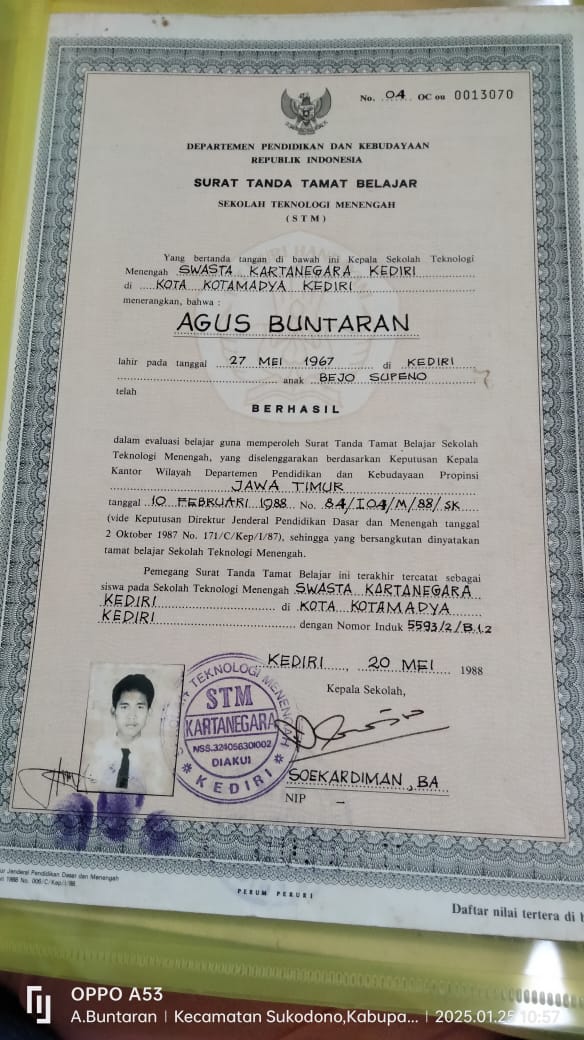 No. 04 OC ou 0013070
DEPARTEMEN PENDIDIKAN DAN KEBUDAYAAN
REPUBLIK INDONESIA
SURAT TANDA TAMAT BELAJAR
SEKOLAH TEKNOLOGI MENENGAH
(STM)
Yang bertanda tangan di bawah ini Kepala Sekolah Teknologi
Menengah SWASTA KARTANEGARA KEDIRI
di KOTA KOTAMADYA KEDIRI
menerangkan, bahwa :
AGUS BUNTARAN
lahir pada tanggal 27 MEI 1967 di KEDIRI
anak BEJO SUPENO
telah
BERHASIL
dalam evaluasi belajar guna memperoleh Surat Tanda Tamat Belajar Sekolah
Teknologi Menengah, yang diselenggarakan berdasarkan Keputusan Kepala
Kantor Wilayah Departemen Pendidikan dan Kebudayaan Propinsi
JAWA TIMUR
tanggal 10 FEBRUARI 1988 No. 84/I04/M/88/SK
(vide Keputusan Direktur Jenderal Pendidikan Dasar dan Menengah tanggal
2 Oktober 1987 No. 171/C/Kep/I/87), sehingga yang bersangkutan dinyatakan
tamat belajar Sekolah Teknologi Menengah.
Pemegang Surat Tanda Tamat Belajar ini terakhir tercatat sebagai
siswa pada Sekolah Teknologi Menengah SWASTA KARTANEGARA
KEDIRI di KOTA KOTAMADYA
KEDIRI dengan Nomor Induk 5593/2/B.1.2
KEDIRI, 20 MEI 1988
Kepala Sekolah,
TEKNOLOGI MENENGAH
STM
KARTANEGARA
NSS.324056301002
DIAKUI
* KEDIRI *
SOEKARDIMAN, BA
NIP –
Jenderal Pendidikan Dasar dan Menengah
1988 No. 006/C/Kep/I/88
PERUM PERURI
Daftar nilai tertera di
OPPO A53
A.Buntaran | Kecamatan Sukodono,Kabupa... | 2025.01.25 10:57